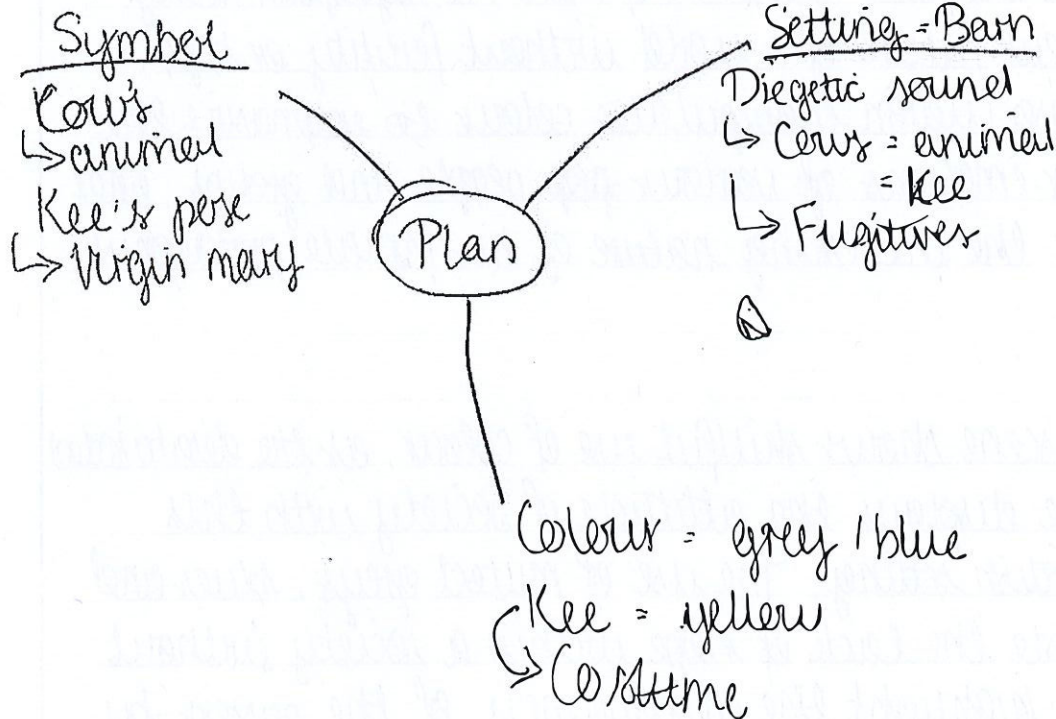 Symbol
Cow's
↳ animal
Kee's pose
↳ Virgin mary
Setting = Barn
Diegetic sound
↳ Cows = animal
= Kee
↳ Fugitives
Plan
Colour = grey / blue
Kee = yellow
↳ Costume